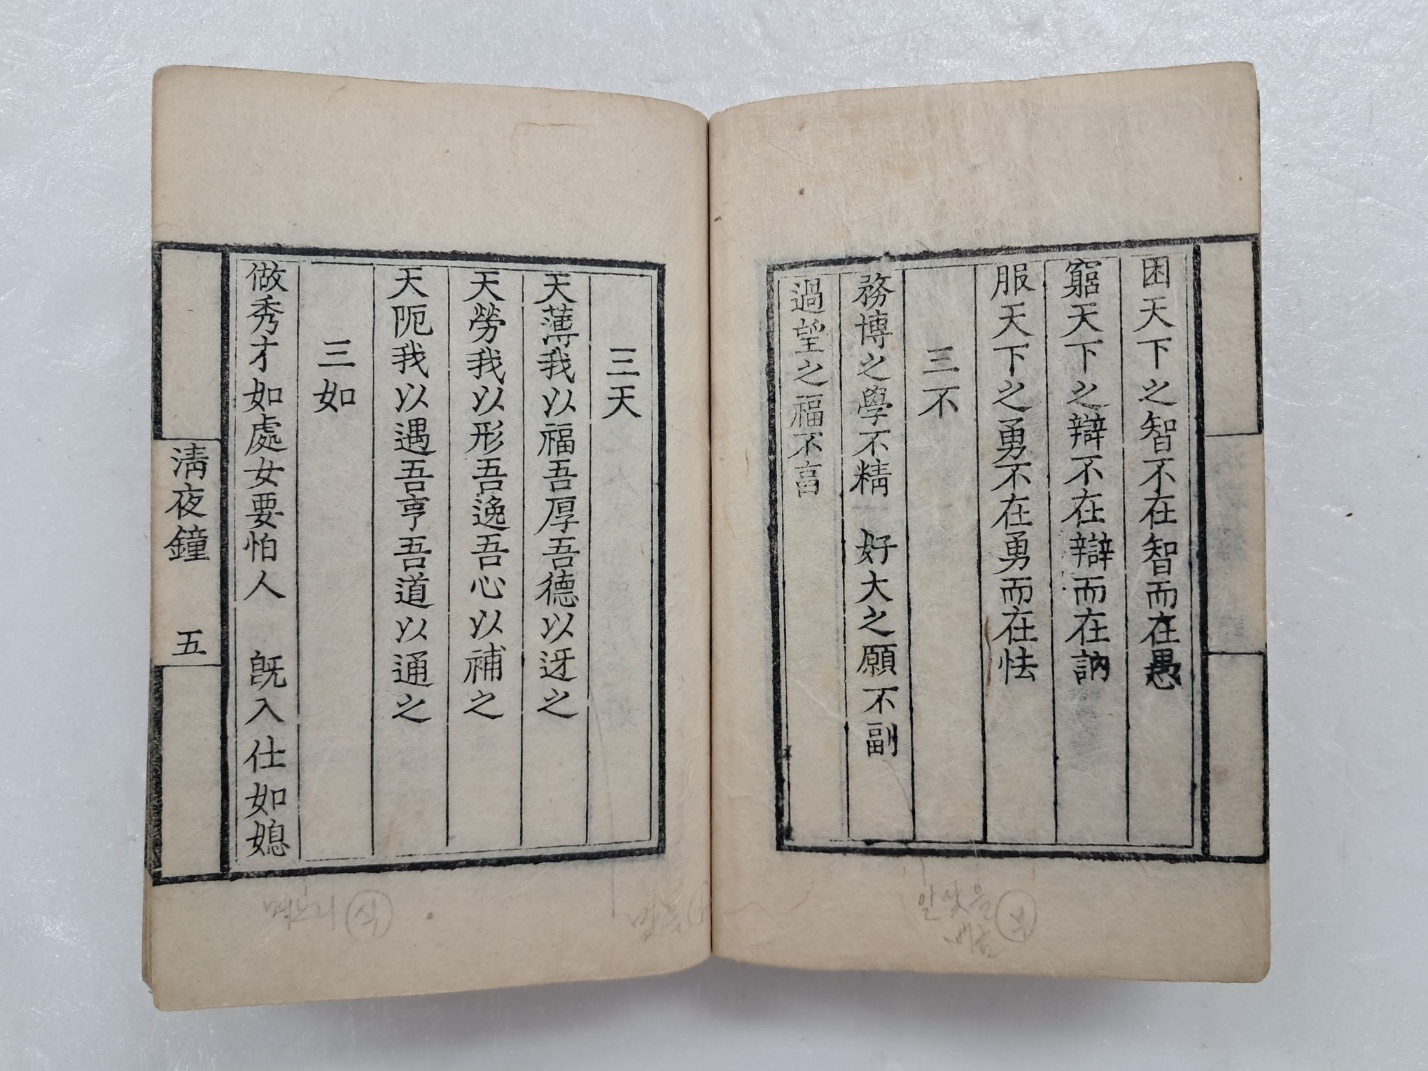 困天下之智不在智而在愚
窮天下之辯不在辯而在訥
服天下之勇不在勇而在怯
三不
務博之學不精 好大之願不副
過望之福不亯
알맞을 부
버금
三天
天薄我以福吾厚吾德以迓之
天勞我以形吾逸吾心以補之
天阨我以遇吾亨吾道以通之
三如
做秀才如處女要怕人 旣入仕如媳
淸夜鐘 五
며느리 식